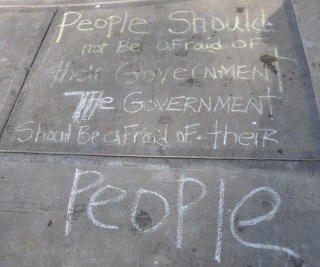 People Should
not Be afraid of
their GOVERNMENT
The GOVERNMENT
Should Be afraid of their
People